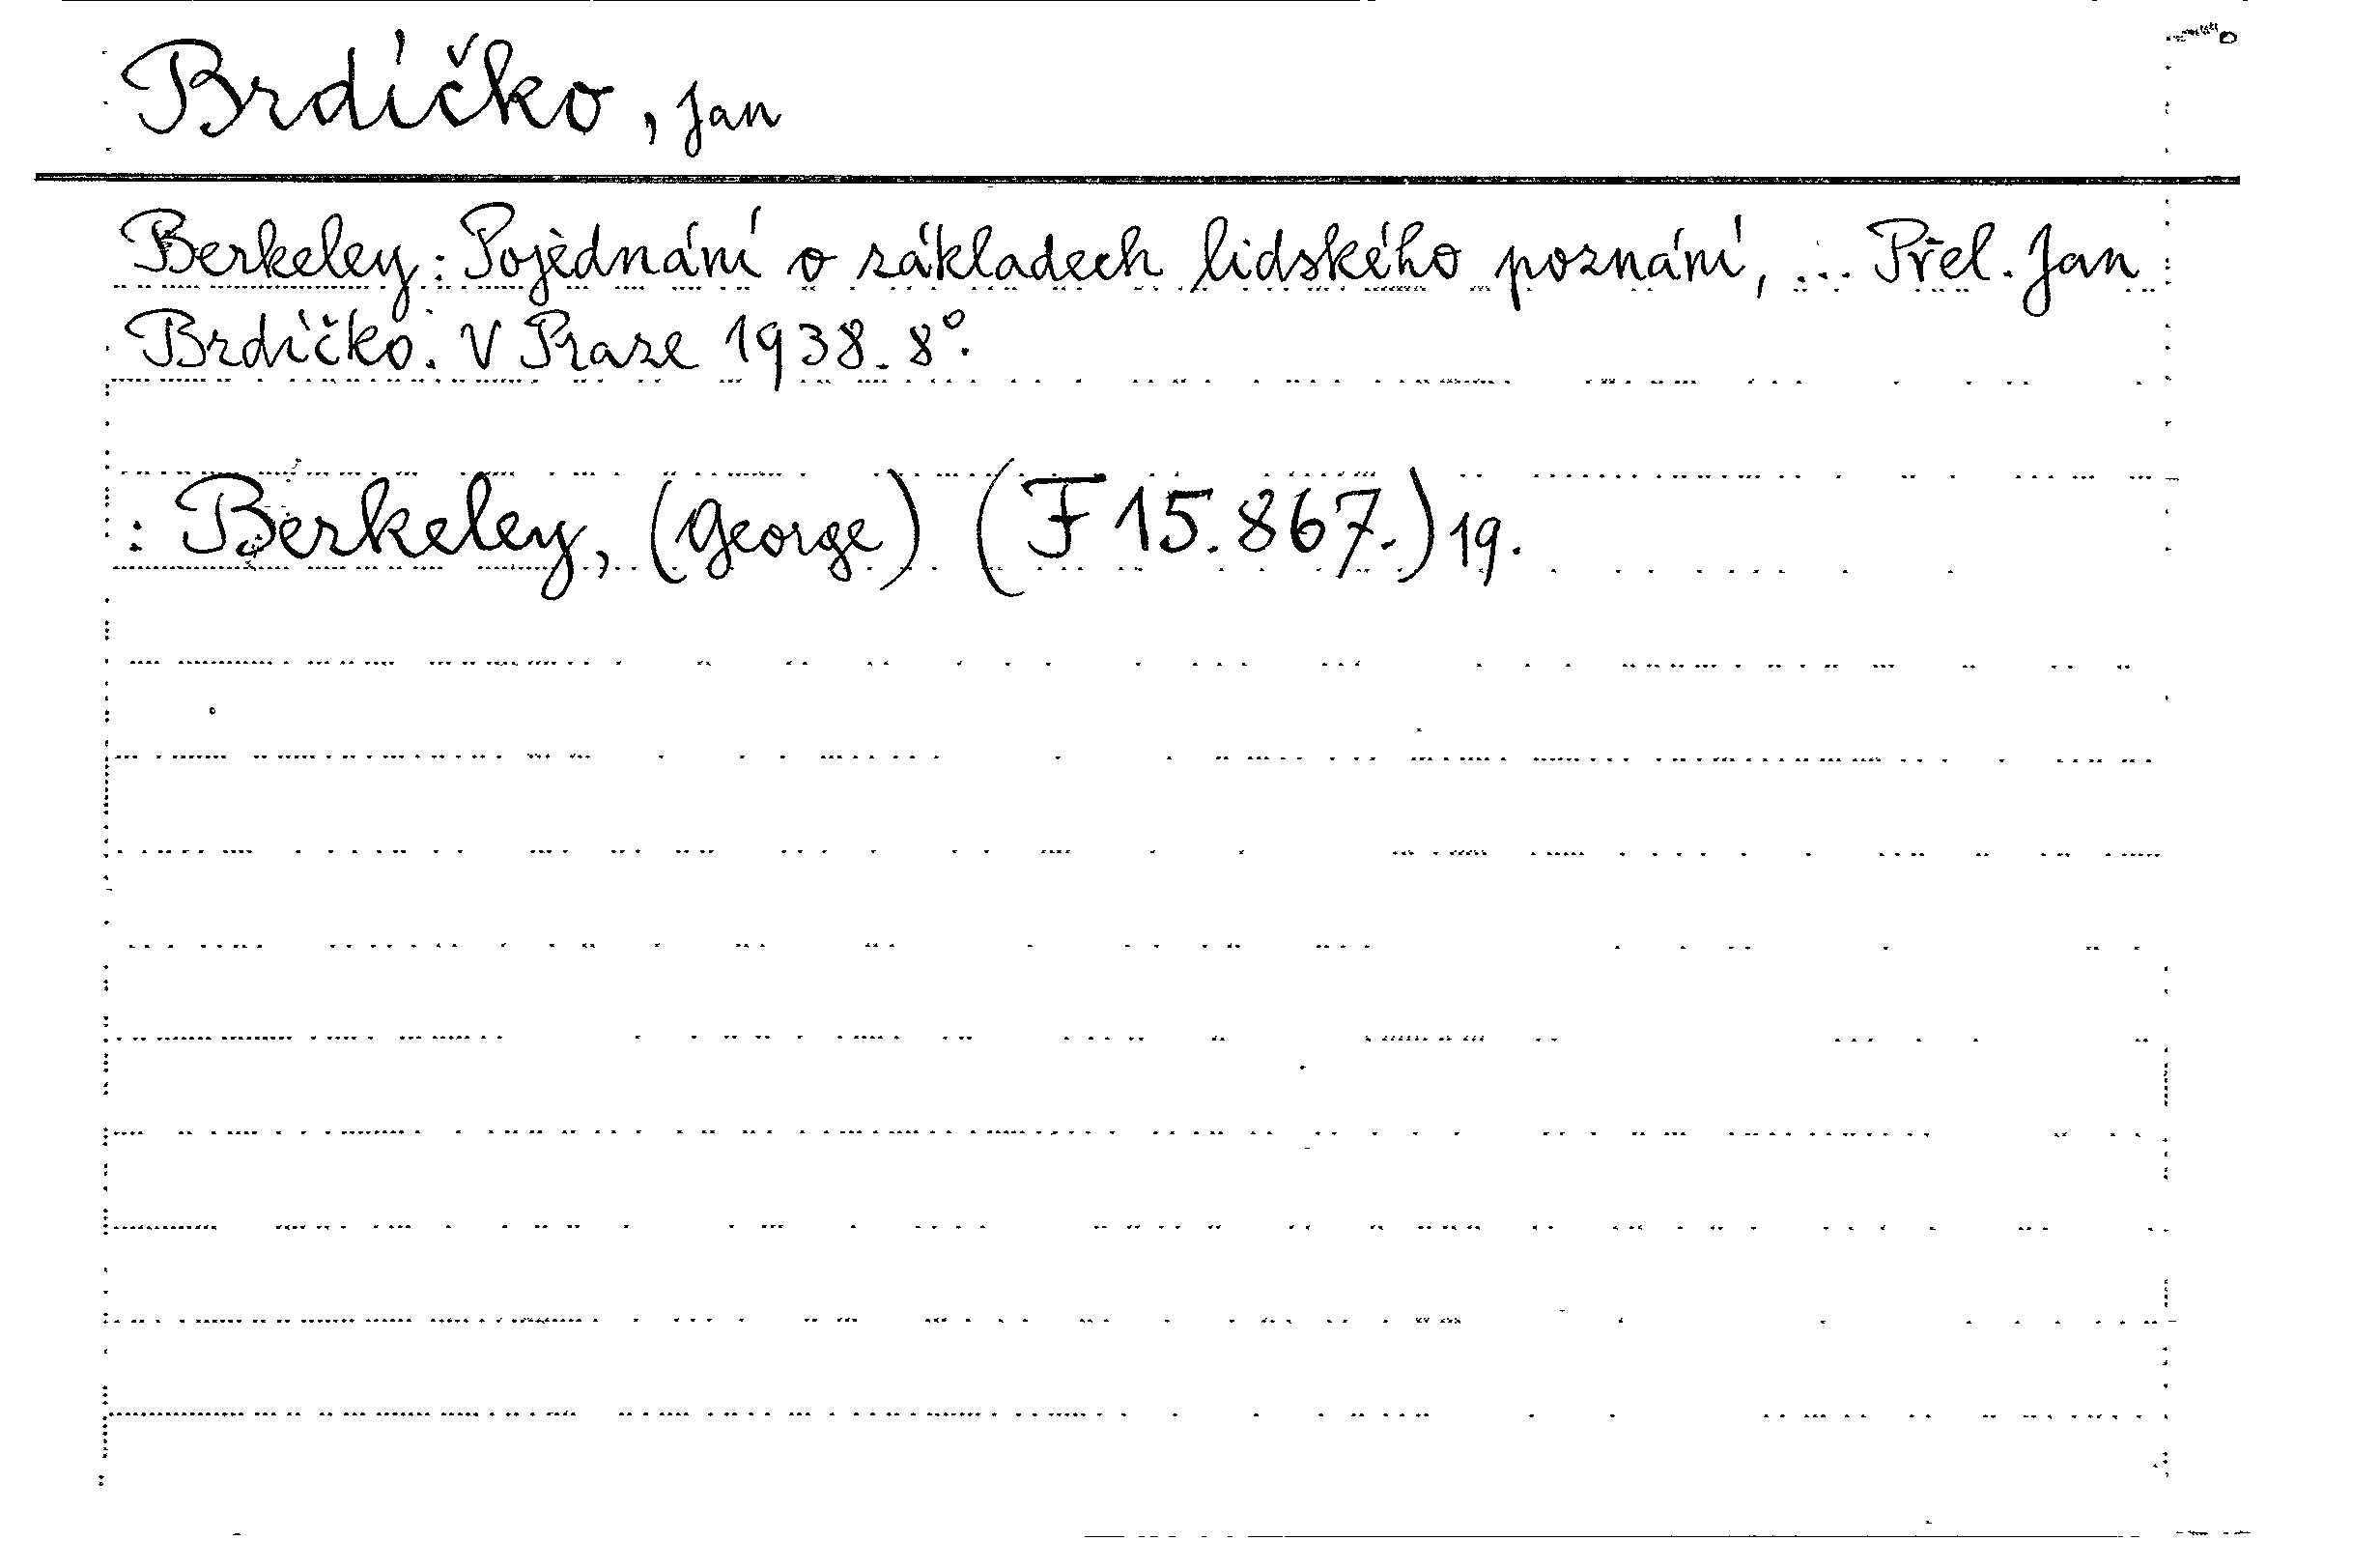 Brdíčko, Jan
Berkeley: Pojednání o základech lidského poznání, ... Přel. Jan
Brdíčko. V Praze 1938. 8°.
: Berkeley, (George) (F 15.867.) 19.